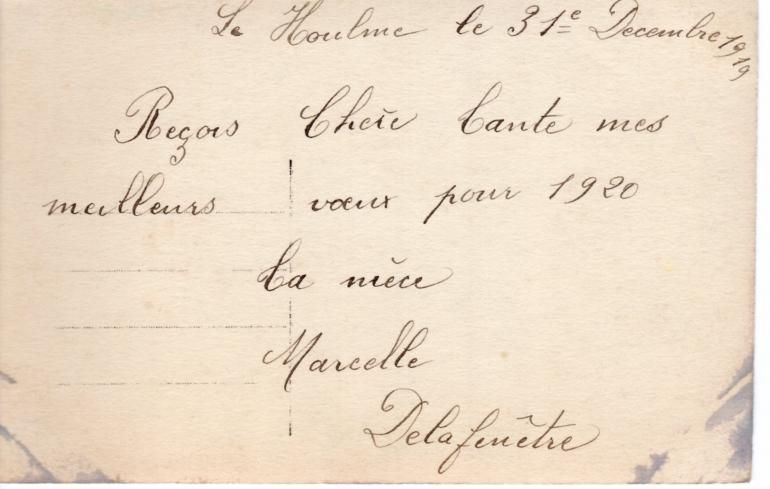 Le Houlme le 31e Decembre 1919
Reçois Chère Tante mes
meilleurs vœux pour 1920
Ta nièce
Marcelle
Delafenêtre